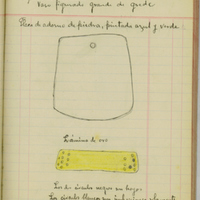 Vaso figurado grande de gente
Pieza de adorno de piedra, pintada azul y verde.
Lámina de oro
Los dos círculos negros son hoyos
Los círculos blancos son